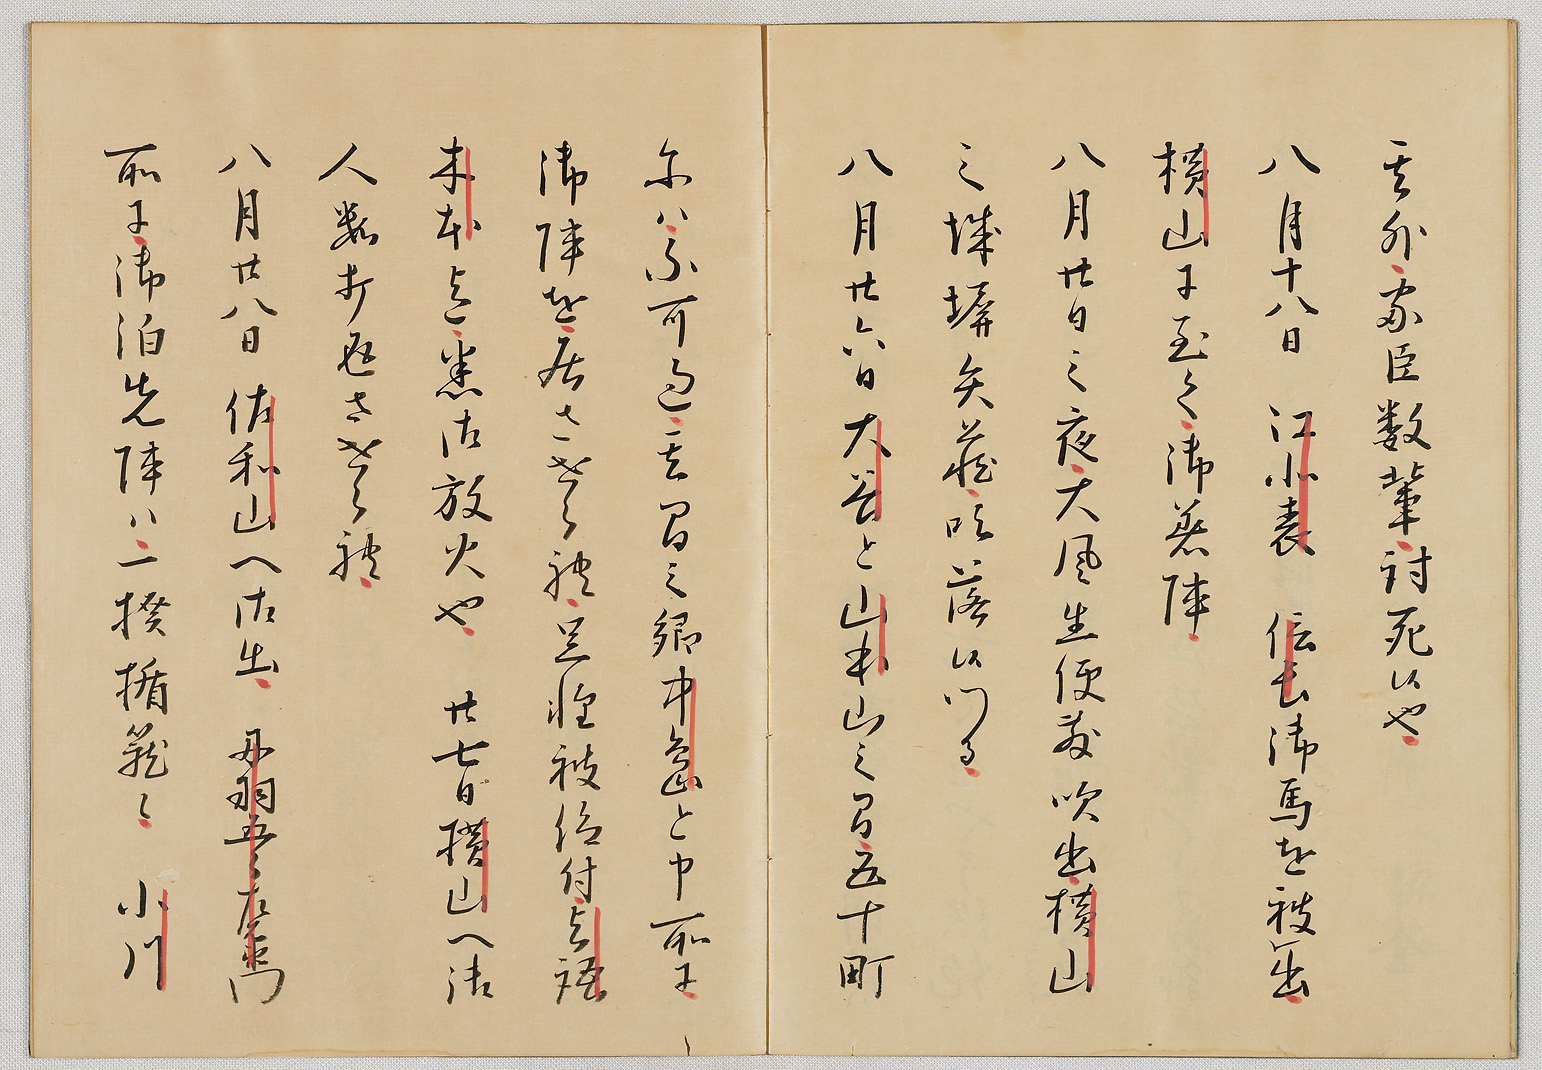 其外家臣数輩討死候也
八月十八日 江北表 信長御馬を被出
横山に至て御着陣
八月廿日之夜大風生便敷吹出横山
之城塀矢蔵吹落候つる
八月廿六日大谷と山本山之間五十町
にハ不可過其間之郷中島と申所に
御陣を居させられ足軽被仰付与語
木本迄悉御放火也 廿七日横山へ御
人数打返させられ
八月廿八日佐和山へ御出 丹羽五郎左衛門
所に御泊先陣ハ一揆楯籠る 小川